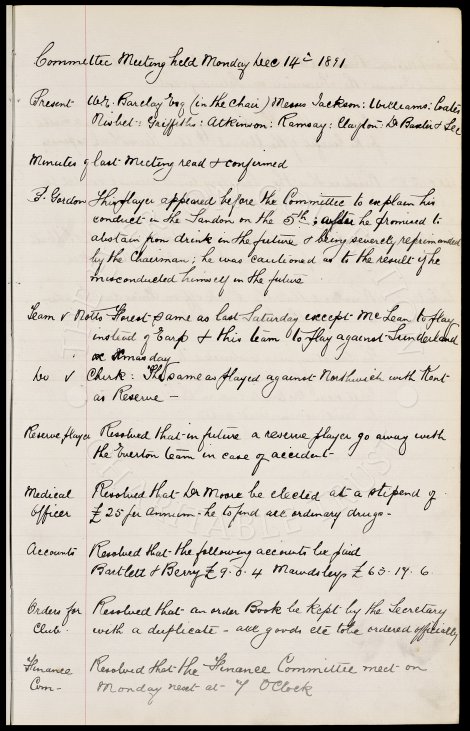 Committee Meeting held Monday Dec 14th 1891
Present W.R. Barclay Esq (in the Chair) Messrs Jackson: Williams: Coates
Nisbet: Griffiths: Atkinson: Ramsay: Clayton: Dr Baxter & Sec
Minutes of last Meeting read & confirmed
P. Gordon This player appeared before the Committee to explain his
conduct in the Sandon on the 5th; after he promised to
abstain from drink in the future & being severely reprimanded
by the Chairman; he was cautioned as to the result if he
misconducted himself in the future
Team v Notts Forest same as last Saturday except McLean to play
instead of Earp & this team to play against Sunderland
on Xmas day
Do v Chirk: The same as played against Northwich with Kent
as Reserve -
Reserve player Resolved that in future a reserve player go away with
the Everton team in case of accident -
Medical Resolved that Dr Moore be elected at a stipend of
Officer £25 per annum - he to find all ordinary drugs -
Accounts Resolved that the following accounts be paid
Bartlett & Berry £9.0.4 Mawdsleys £63.19.6
Orders for Resolved that an order Book be kept by the Secretary
Club. with a duplicate - all goods etc to be ordered officially
Finance Resolved that the Finance Committee meet on
Com- Monday next at 7 O'Clock